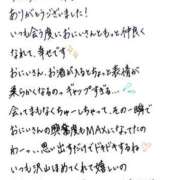 ありがとうございました!
いつも会う度におにいさんともっと仲良く
なれて、幸せです✨
おにいさん、お酒が入るとちょっと表情が
柔らかくなるの。ギャップすぎる…
会ってまもなくちゅーしちゃって、その一瞬で
おにいさんの興奮度もMAXになってたの
わーゃ…思い出すだけでドキドキするね
いつも沢山ほめてくれて嬉しいの